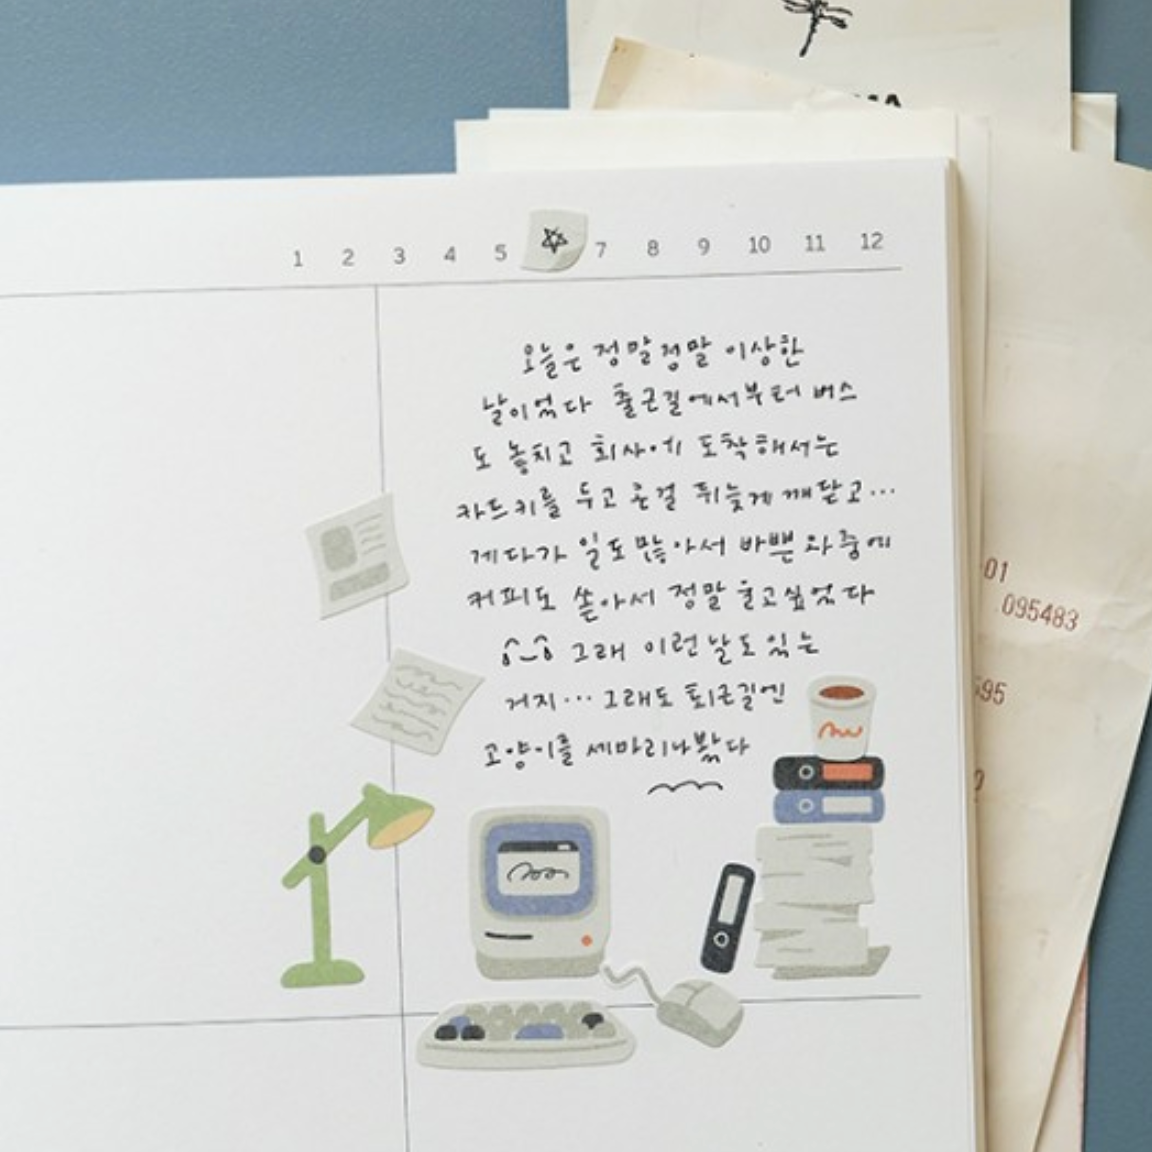 1 2 3 4 5 7 8 9 10 11 12
오늘은 정말정말 이상한
날이었다 출근길에서부터 버스
도 놓치고 회사에 도착해서는
카드키를 두고 온걸 뒤늦게 깨닫고...
게다가 일도 많아서 바쁜 와중에
커피도 쏟아서 정말 울고싶었다
그래 이런날도 있는
거지... 그래도 퇴근길엔
고양이를 세마리나봤다
01
095483
595